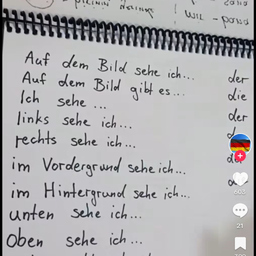 ! WIE -
Auf dem Bild sehe ich... der
Auf dem Bild gibt es... die
Ich sehe ... der
links sehe ich...
rechts sehe ich...
im Vordergrund sehe ich...
im Hintergrund sehe ich...
unten sehe ich...
oben sehe ich...
21